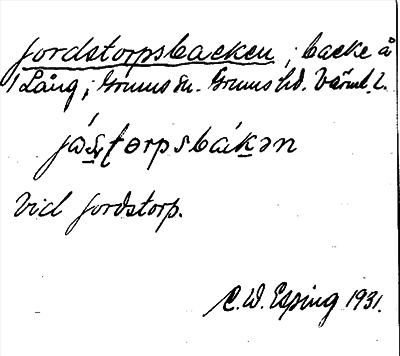 Jordstorpsbacken; backe å
Lång; Grums sn. Grums hd. Värml. l.
jo̊ṣţorpsbákən
Vid Jordstorp.
C. W. Esping 1931.